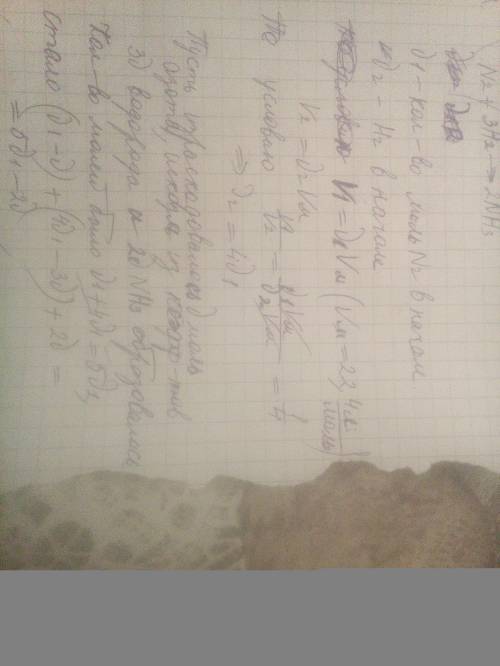 N2 + 3H2 → 2NH3
ν1 - кол-во моль N2 в начале
ν2 - H2 в начале
V1 = ν1Vм (Vм = 22,4 л/моль)
V2 = ν2Vм
По условию V1/V2 = ν1Vм/ν2Vм = 1/4
⇒ ν2 = 4ν1
Пусть израсходовалось ν моль
азота, исходя из коэфф-тов
3ν водорода и 2ν NH3 образовалось
Кол-во молей было ν1 + 4ν1 = 5ν1,
стало (ν1 - ν) + (4ν1 - 3ν) + 2ν =
= 5ν1 - 2ν